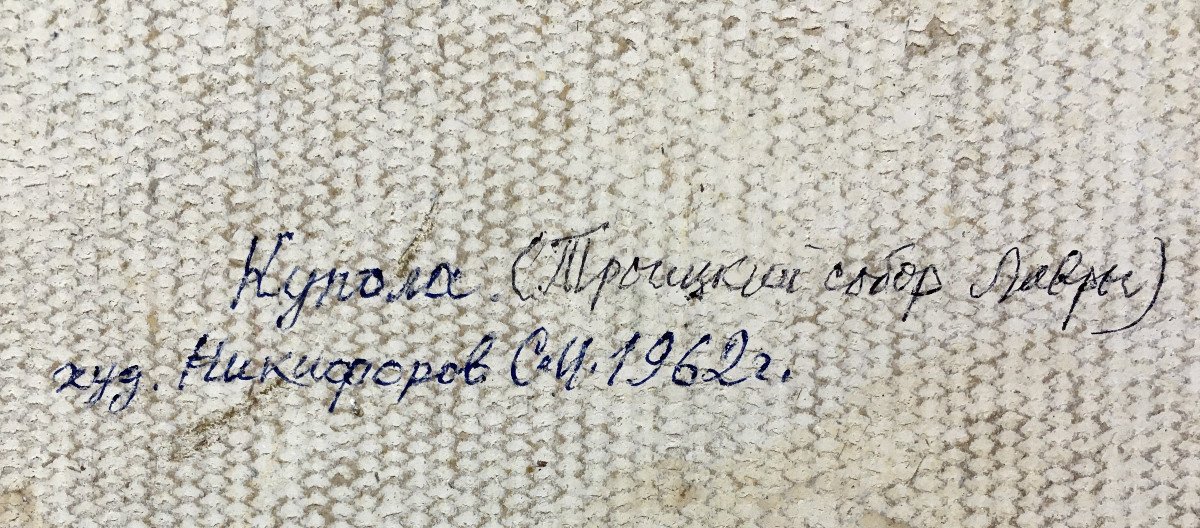 Купола. (Троицкий собор Лавры)
худ. Никифоров С.И. 1962г.